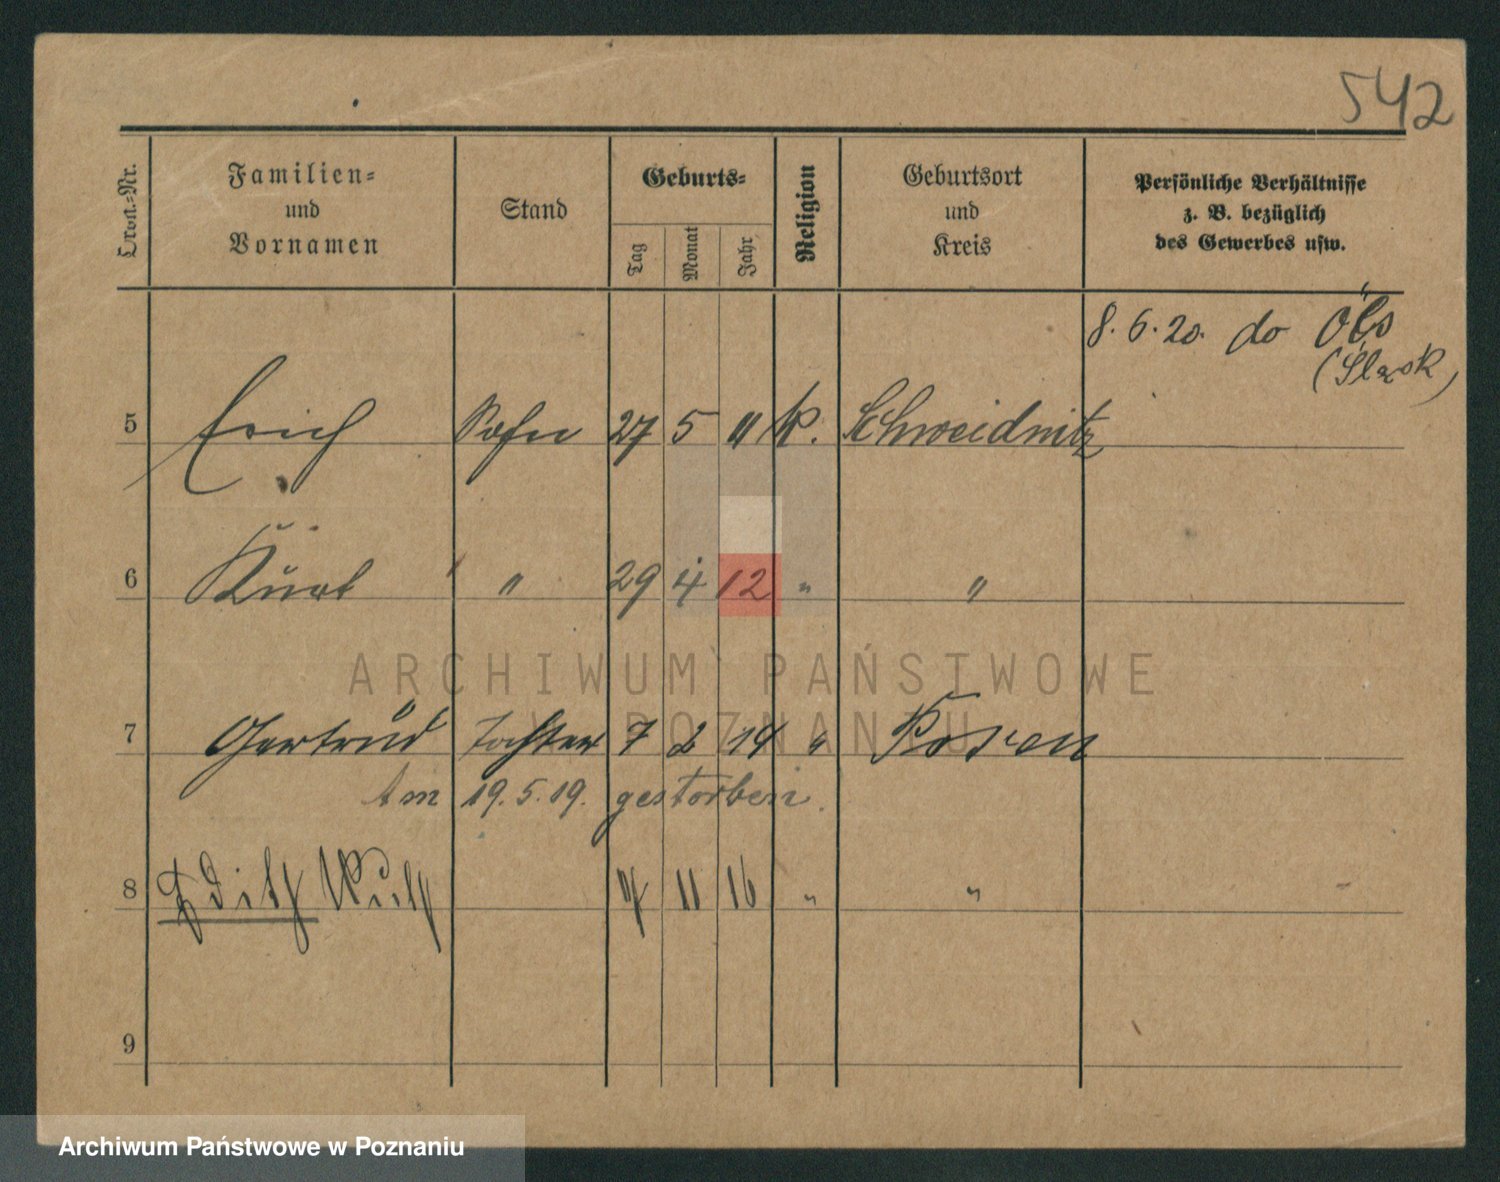 542
Ordn.-Nr.
Familien-
und
Vornamen
Stand
Geburts-
Tag
Monat
Jahr
Religion
Geburtsort
und
Kreis
Persönliche Verhältnisse
z. B. bezüglich
des Gewerbes usw.
8.6.20. do Öls
(Śląsk)
5 Erich Sohn 27 5 11 K. Schweidnitz
6 Kurt " 29 4 12 " "
7 Gertrud Tochter 7 2 14 " Posen
Am 19.5.19. gestorben.
8 Edith Ruth 11 16 " "
9
ARCHIWUM PAŃSTWOWE
W POZNANIU
Archiwum Państwowe w Poznaniu